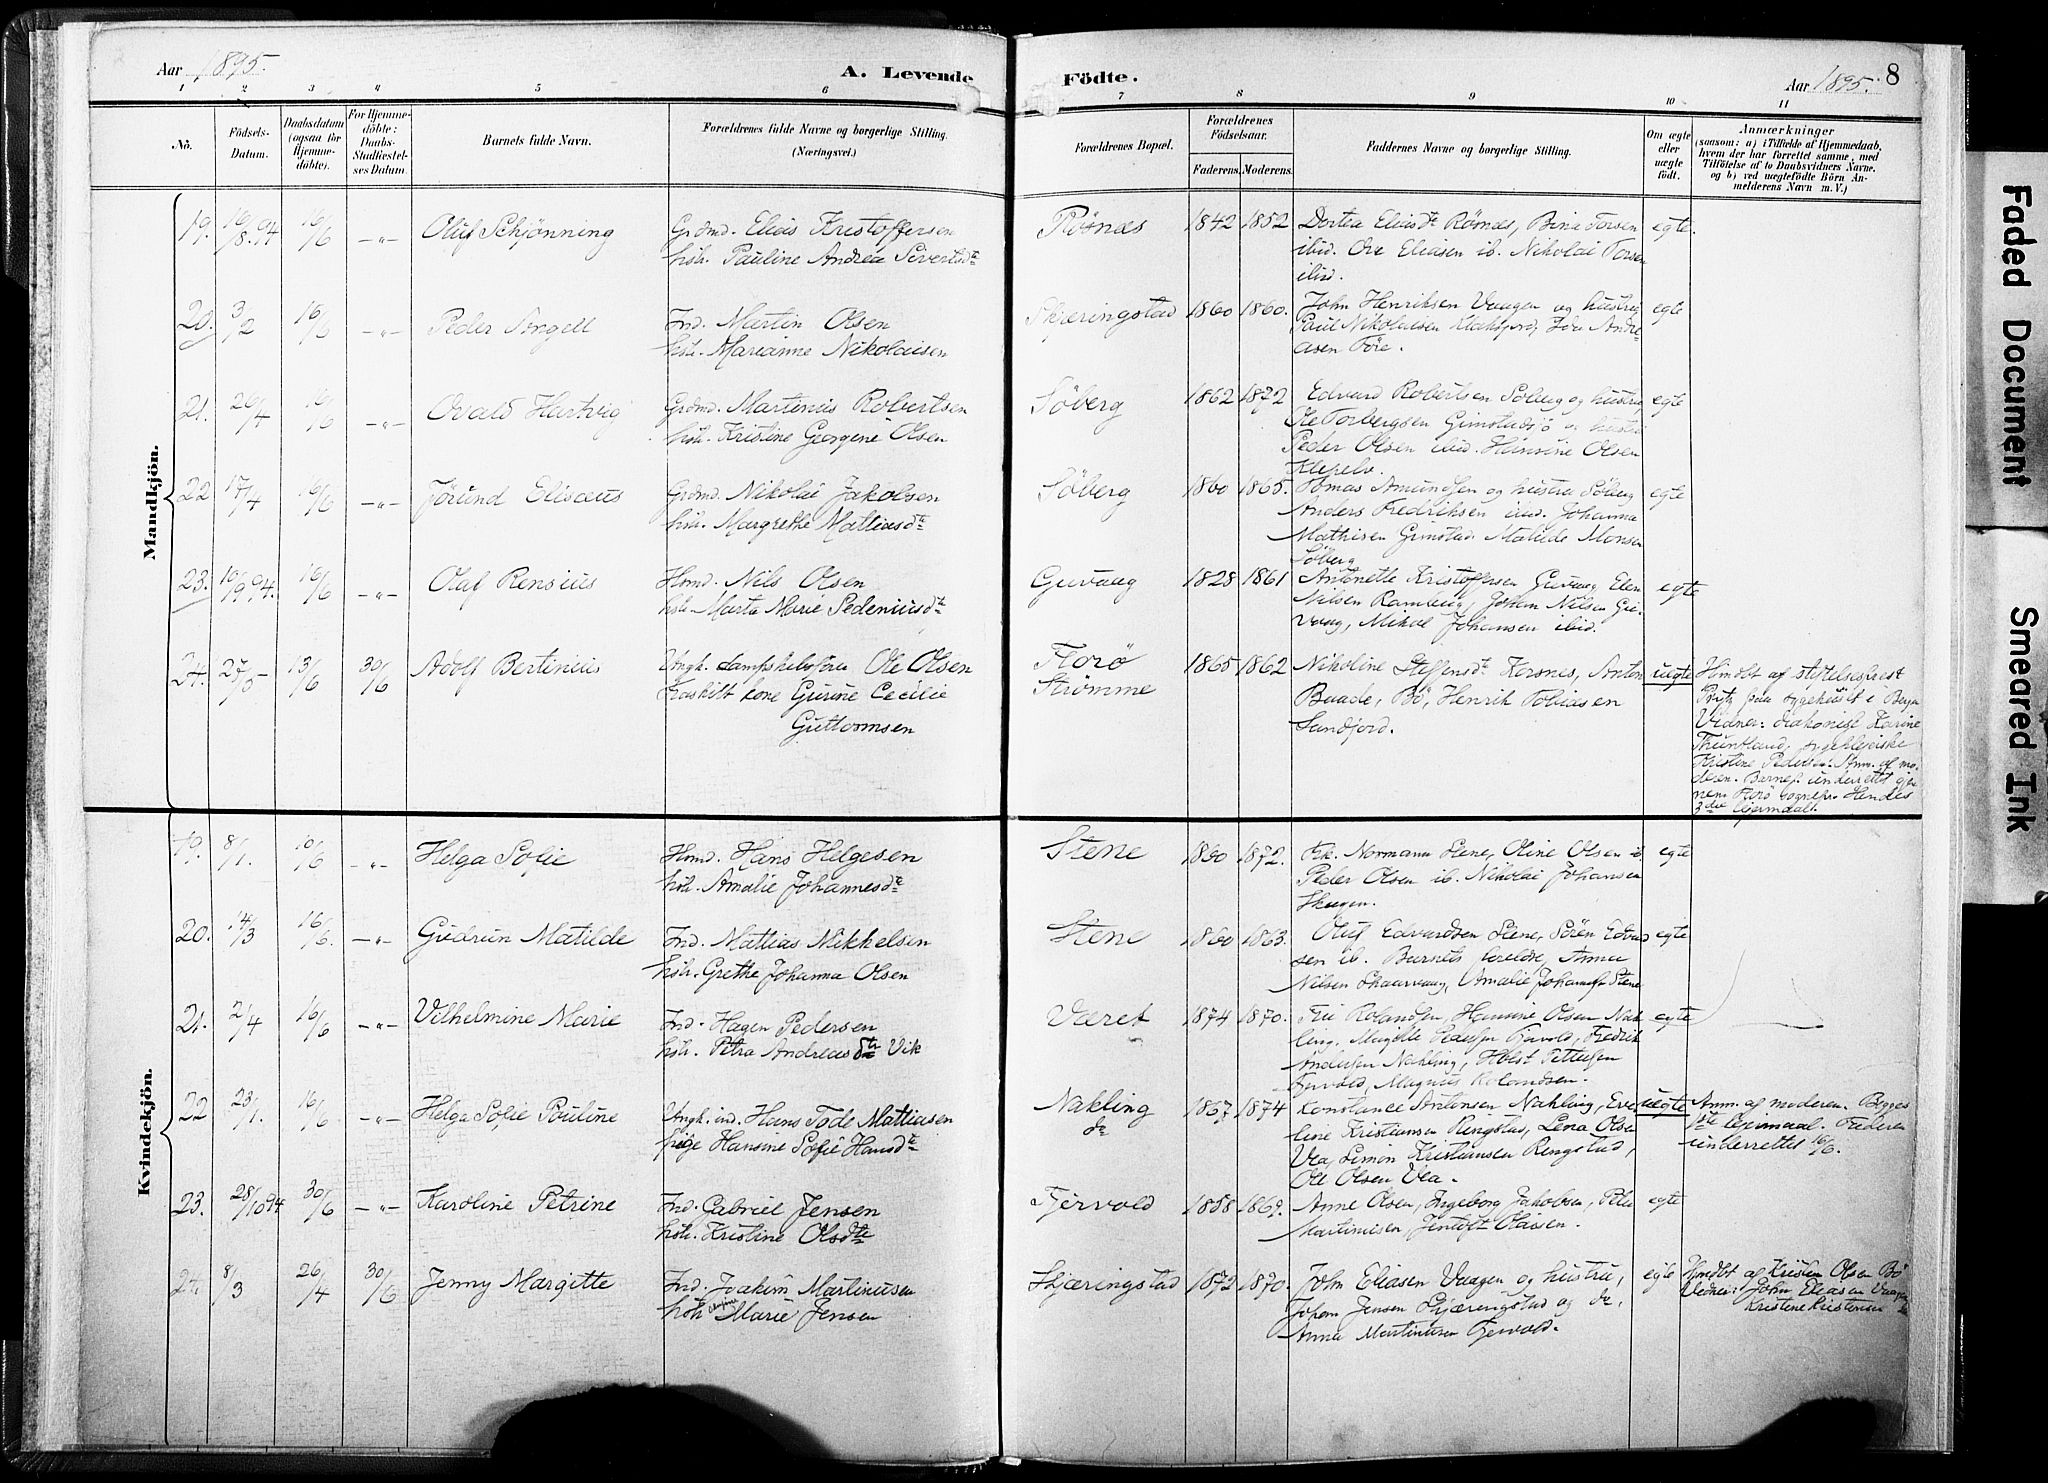 Aar 1895.
A. Levende
Födte.
Aar 1895.
8
1 2 3 4 5 6 7 8 9 10 11
No.
Födsels-
Datum.
Daabsdatum
(ogsaa for
Hjemme-
döbte).
For Hjemme-
döbte:
Daabs-
Stadfæstel-
ses Datum.
Barnets fulde Navn.
Forældrenes fulde Navne og borgerlige Stilling.
(Næringsvei.)
Forældrenes Bopæl.
Forældrenes
Födselsaar.
Faderens. Moderens.
Faddernes Navne og borgerlige Stilling.
Om ægte
eller
uægte
födt.
Anmærkninger
(saasom: a) i Tilfælde af Hjemmedaab,
hvem der har forrettet samme, med
Tilföielse af to Daabsvidners Navne.
og b) ved uægtefödte Börn An-
melderens Navn m. V.)
Mandkjön.
19. 19/8.94 16/6 -"- Oluf Schjønning Grdmd. Elias Kristoffersen Rösnæs 1842 1852 Dortea Eliasdtr Rösnæs, Bina Torsen egte.
hstr. Pauline Andrea Sivertsdtr ibid. Ove Eliasen ib. Nikolai Torsen
ibid.
20. 3/2 16/6 -"- Peder Angell Ind. Martin Olsen Skjæringstad 1860 1860. John Henriksen Vaagen og hustru egte
hstr. Marianne Nikolaisen Paul Nikolaisen Klaksjord, John Andre-
asen Före.
21. 26/4 16/6 -"- Ovald Hartvig Grdmd. Martinus Robertsen Söberg 1862 1872 Edvard Robertsen Söberg og hustru egte
hstr. Kristine Georgine Olsen Ole Torbergsen Grimstadsjö og hustru
Peder Olsen ibid. Hansine Olsen
Klepelv.
22 17/4 16/6 -"- Jörund Elisæus Grdmd. Nikolai Jakobsen Söberg 1860 1865. Tomas Amundsen og hustru Söberg egte
hstr. Margrethe Mattiasdtr Anders Fredriksen ibid. Johanna
Mathisen Grimstad Matilde Monsen
Söberg
23. 10/9 94. 16/6 -"- Olaf Rensius Hmd. Nils Olsen Guvaag 1828 1861 Antonette Kristoffersen Guvaag, Elen egte
hstr. Marta Marie Pedeniusdtr Nilsen Ramberg, Johan Nilsen Gu-
vaag, Mikal Johansen ibid.
24. 27/5 13/6 30/6 Adolf Bertinius Ungk. Dampskibsförer Ole Olsen Florö 1865 1862 Nikoline Steffensdtr Korsnes, Anton uegte Hjmdbt af stiftelsesprest
Fraskilt kone Gurine Cecilie Strömme Baade, Bö, Henrik Tobiasen paa sygehuset i Bergen
Guttormsen Sandfjord. Vidner: diakonisse Karine
sygepleierske
Kristine Pedersen. Anm. af mo-
deren. Barnef. underrettet gjen-
nem Florö sognepr. Hendes
3die leiermaal.
Kvindekjön.
19. 8/1. 16/6 -"- Helga Sofie Hmd. Hans Helgesen Stene 1860 1872. Frk. Normann Stene, Oline Olsen ib. egte
hstr. Amalie Johannesdtr Peder Olsen ib. Nikolai Johansen
Skagen.
20. 14/3 16/6. -"- Gudrun Matilde Ind. Mattias Mikkelsen Stene 1860 1863. Oluf Edvardsen Stene, Sören Edvard- egte
hstr. Grethe Johanna Olsen sen ib. Barnets forældre, Anna
Nilsen Skaarvaag, Amalie Johannesdtr Stene
21. 2/4 16/6 -"- Vilhelmine Marie Ind. Hagen Pedersen Været 1874 1870. Fru Rolandsen, Hansine Olsen Nak- egte
hstr. Petra Andreasdtr Vik ling. Magitte Pedersen Fjervold, Fredrik
Andersen Nakling, Holst Pettersen
Fjervold, Magnus Rolandsen.
22 23/1. 16/6 -"- Helga Sofie Pauline Ungk. ind. Hans Tode Mattiasen Nakling 1867 1874 Konstance Antonsen Nakling, Eve- uegte Anm. af moderen. Begges
pige Hansine Sofie Hansdtr do line Kristiansen Ringstad, Lena Olsen 1ste leiermaal. Faderen
Vea, Simon Kristiansen Ringstad, underrettet 16/6.
Ole Olsen Vea.
23. 28/10 94 30/6 -"- Karoline Petrine Ind. Gabriel Jensen Fjervold 1858 1869. Anne Olsen, Ingeborg Jakobsen, Peder egte
hstr. Kristine Olsdtr Martinusen, Jentoft Olaisen.
24. 8/3 26/4 30/6 Jenny Margitte Ind. Joakim Martinusen Skjæringstad 1872 1870. John Eliasen Vaagen og hustru, egte Hmdbt af Kristen Olsen Bö
hstr. Marie Jensen Johan Jensen Skjæringstad og do, Vidner: John Eliasen Vaagen
Anna Martinusen Fjervold. Kristine Kristensen
Faded Document
Smeared Ink